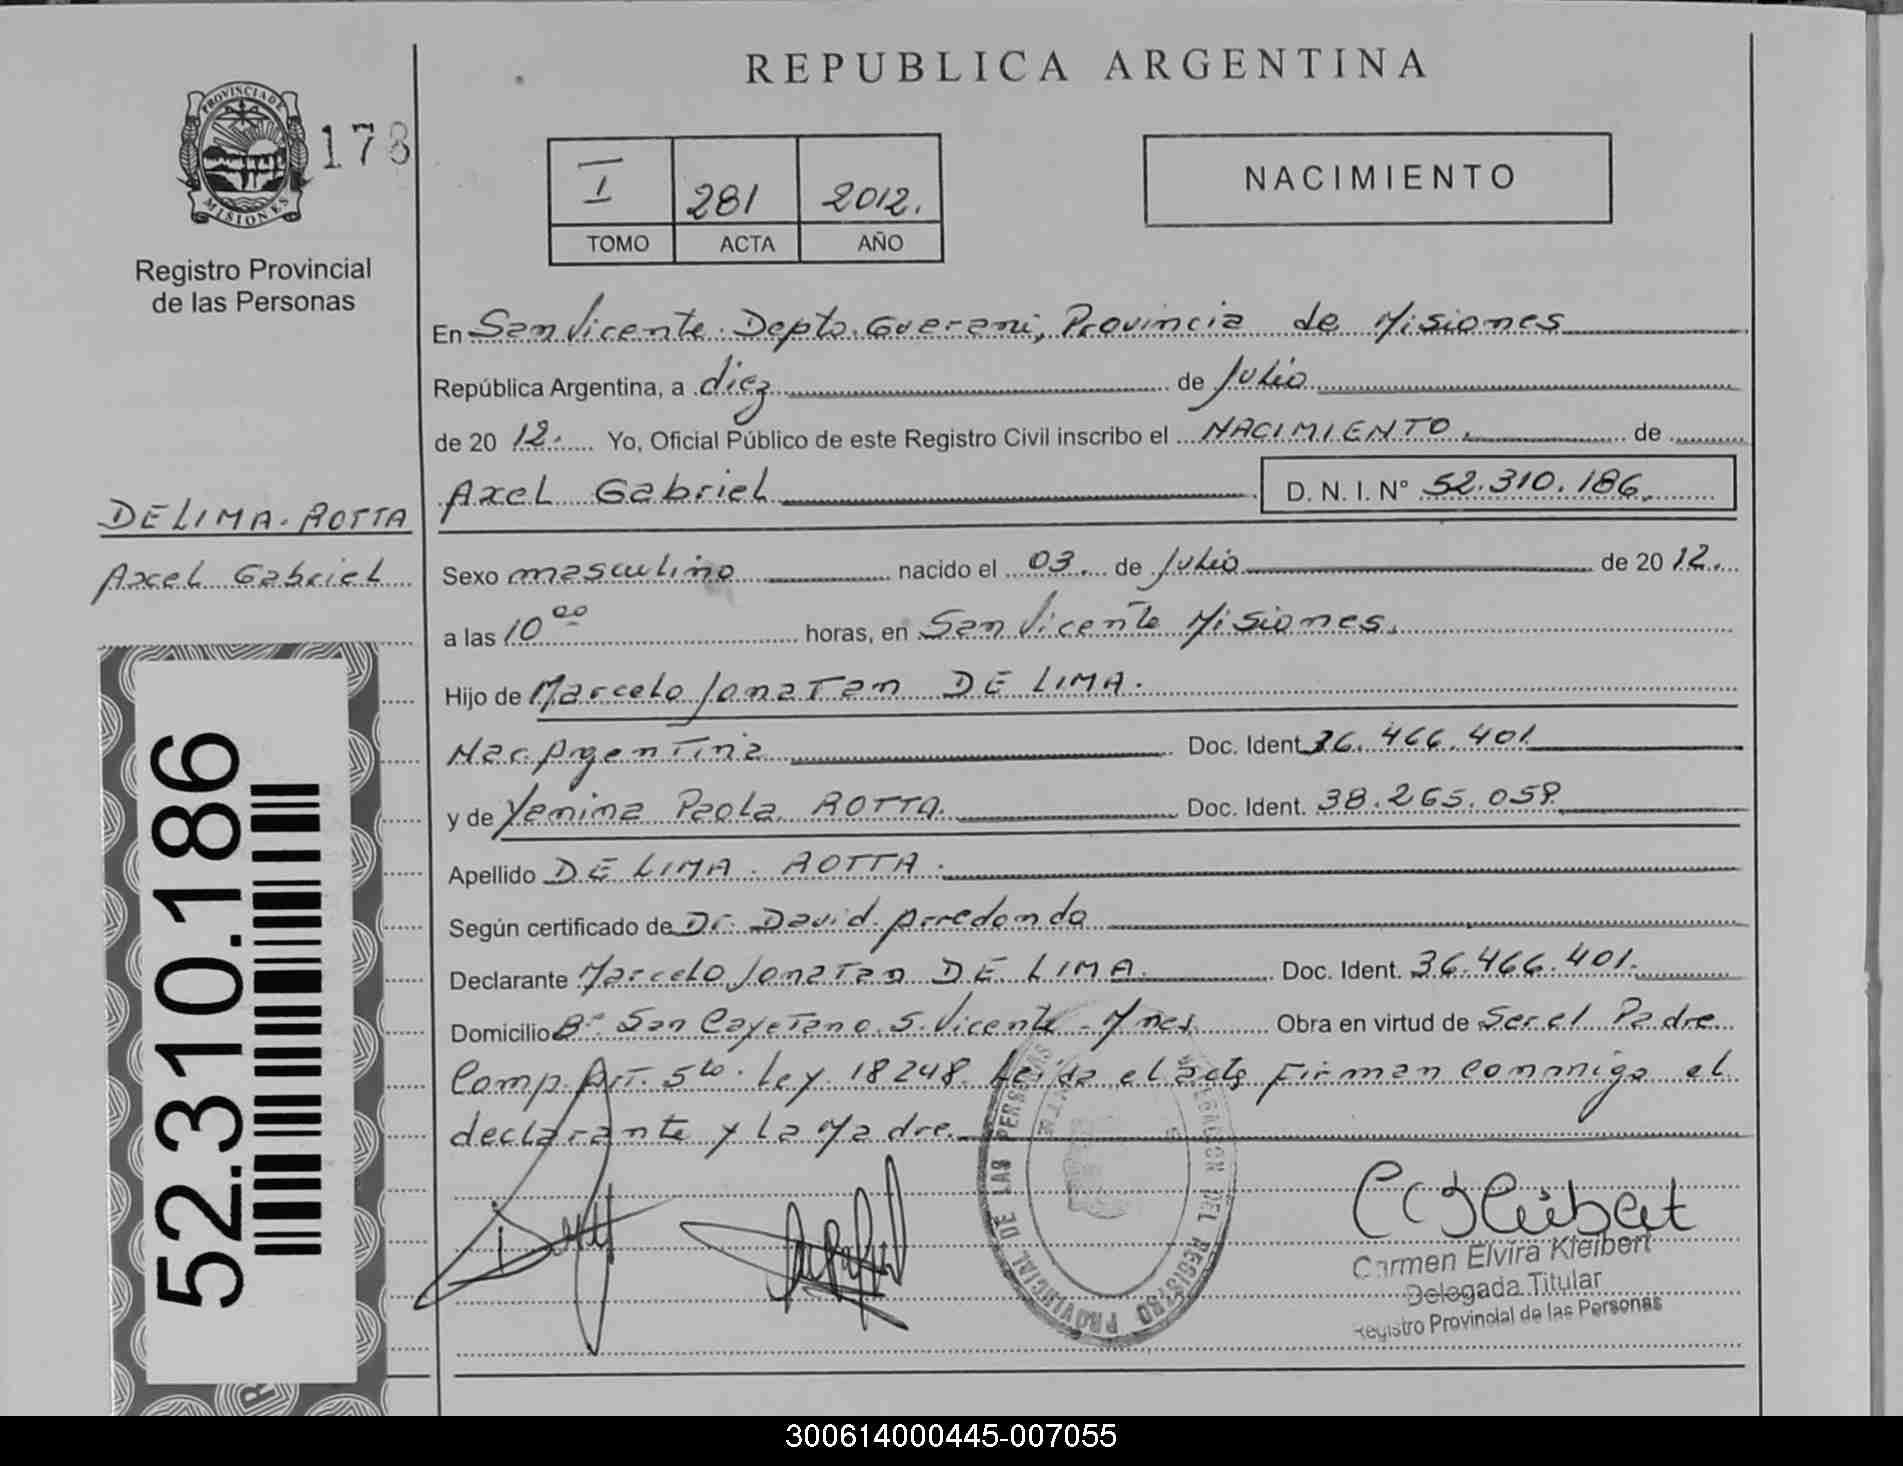 REPUBLICA ARGENTINA
PROVINCIA DE
MISIONES
178
Registro Provincial
de las Personas
I 281 2012.
TOMO ACTA AÑO
NACIMIENTO
En San Vicente. Depto. Guarani, Provincia de Misiones
República Argentina, a diez de Julio
de 20 12. Yo, Oficial Público de este Registro Civil inscribo el NACIMIENTO. de
Axel Gabriel D. N. I. N° 52.310.186.
DE LIMA. ROTTA
Axel Gabriel
Sexo masculino nacido el 03. de Julio de 20 12.
a las 10 00 horas, en San Vicente Misiones.
Hijo de Marcelo Jonatan DE LIMA.
Nac. Argentina Doc. Ident. 36.466.401.
y de Yanina Paola ROTTA. Doc. Ident. 38.265.059
Apellido DE LIMA. ROTTA.
Según certificado de Dr. David Arredondo
Declarante Marcelo Jonatan DE LIMA. Doc. Ident. 36.466.401.
Domicilio B° San Cayetano. S. Vicente - Mnes. Obra en virtud de Ser el Padre
Comp. Art. 5to. Ley 18248. Leida el acta Firman conmigo el
declarante y la Madre.
52.310.186
PROVINCIAL DE LAS PERSONAS
DEL REGISTRO
Carmen Elvira Kleibert
Delegada Titular
Registro Provincial de las Personas
300614000445-007055